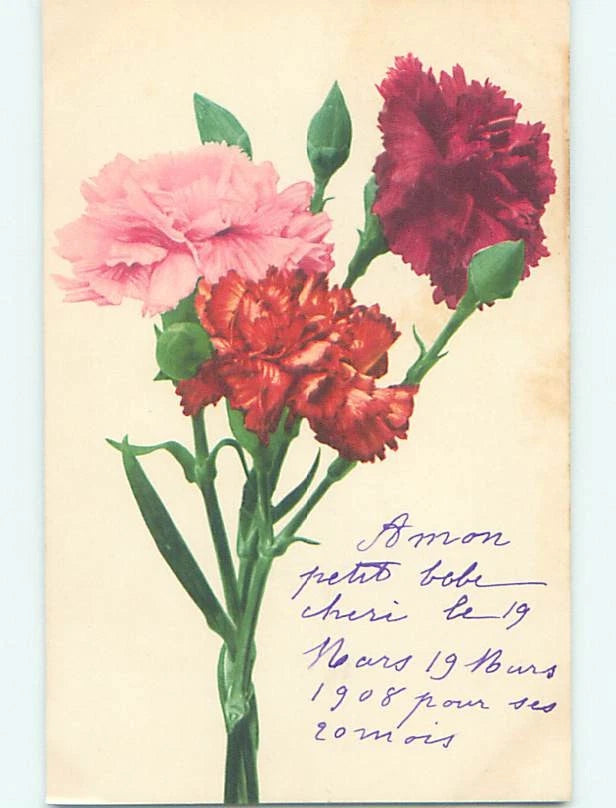 A mon
petit bebe
cheri le 19
Mars 19 Mars
1908 pour ses
20 mois